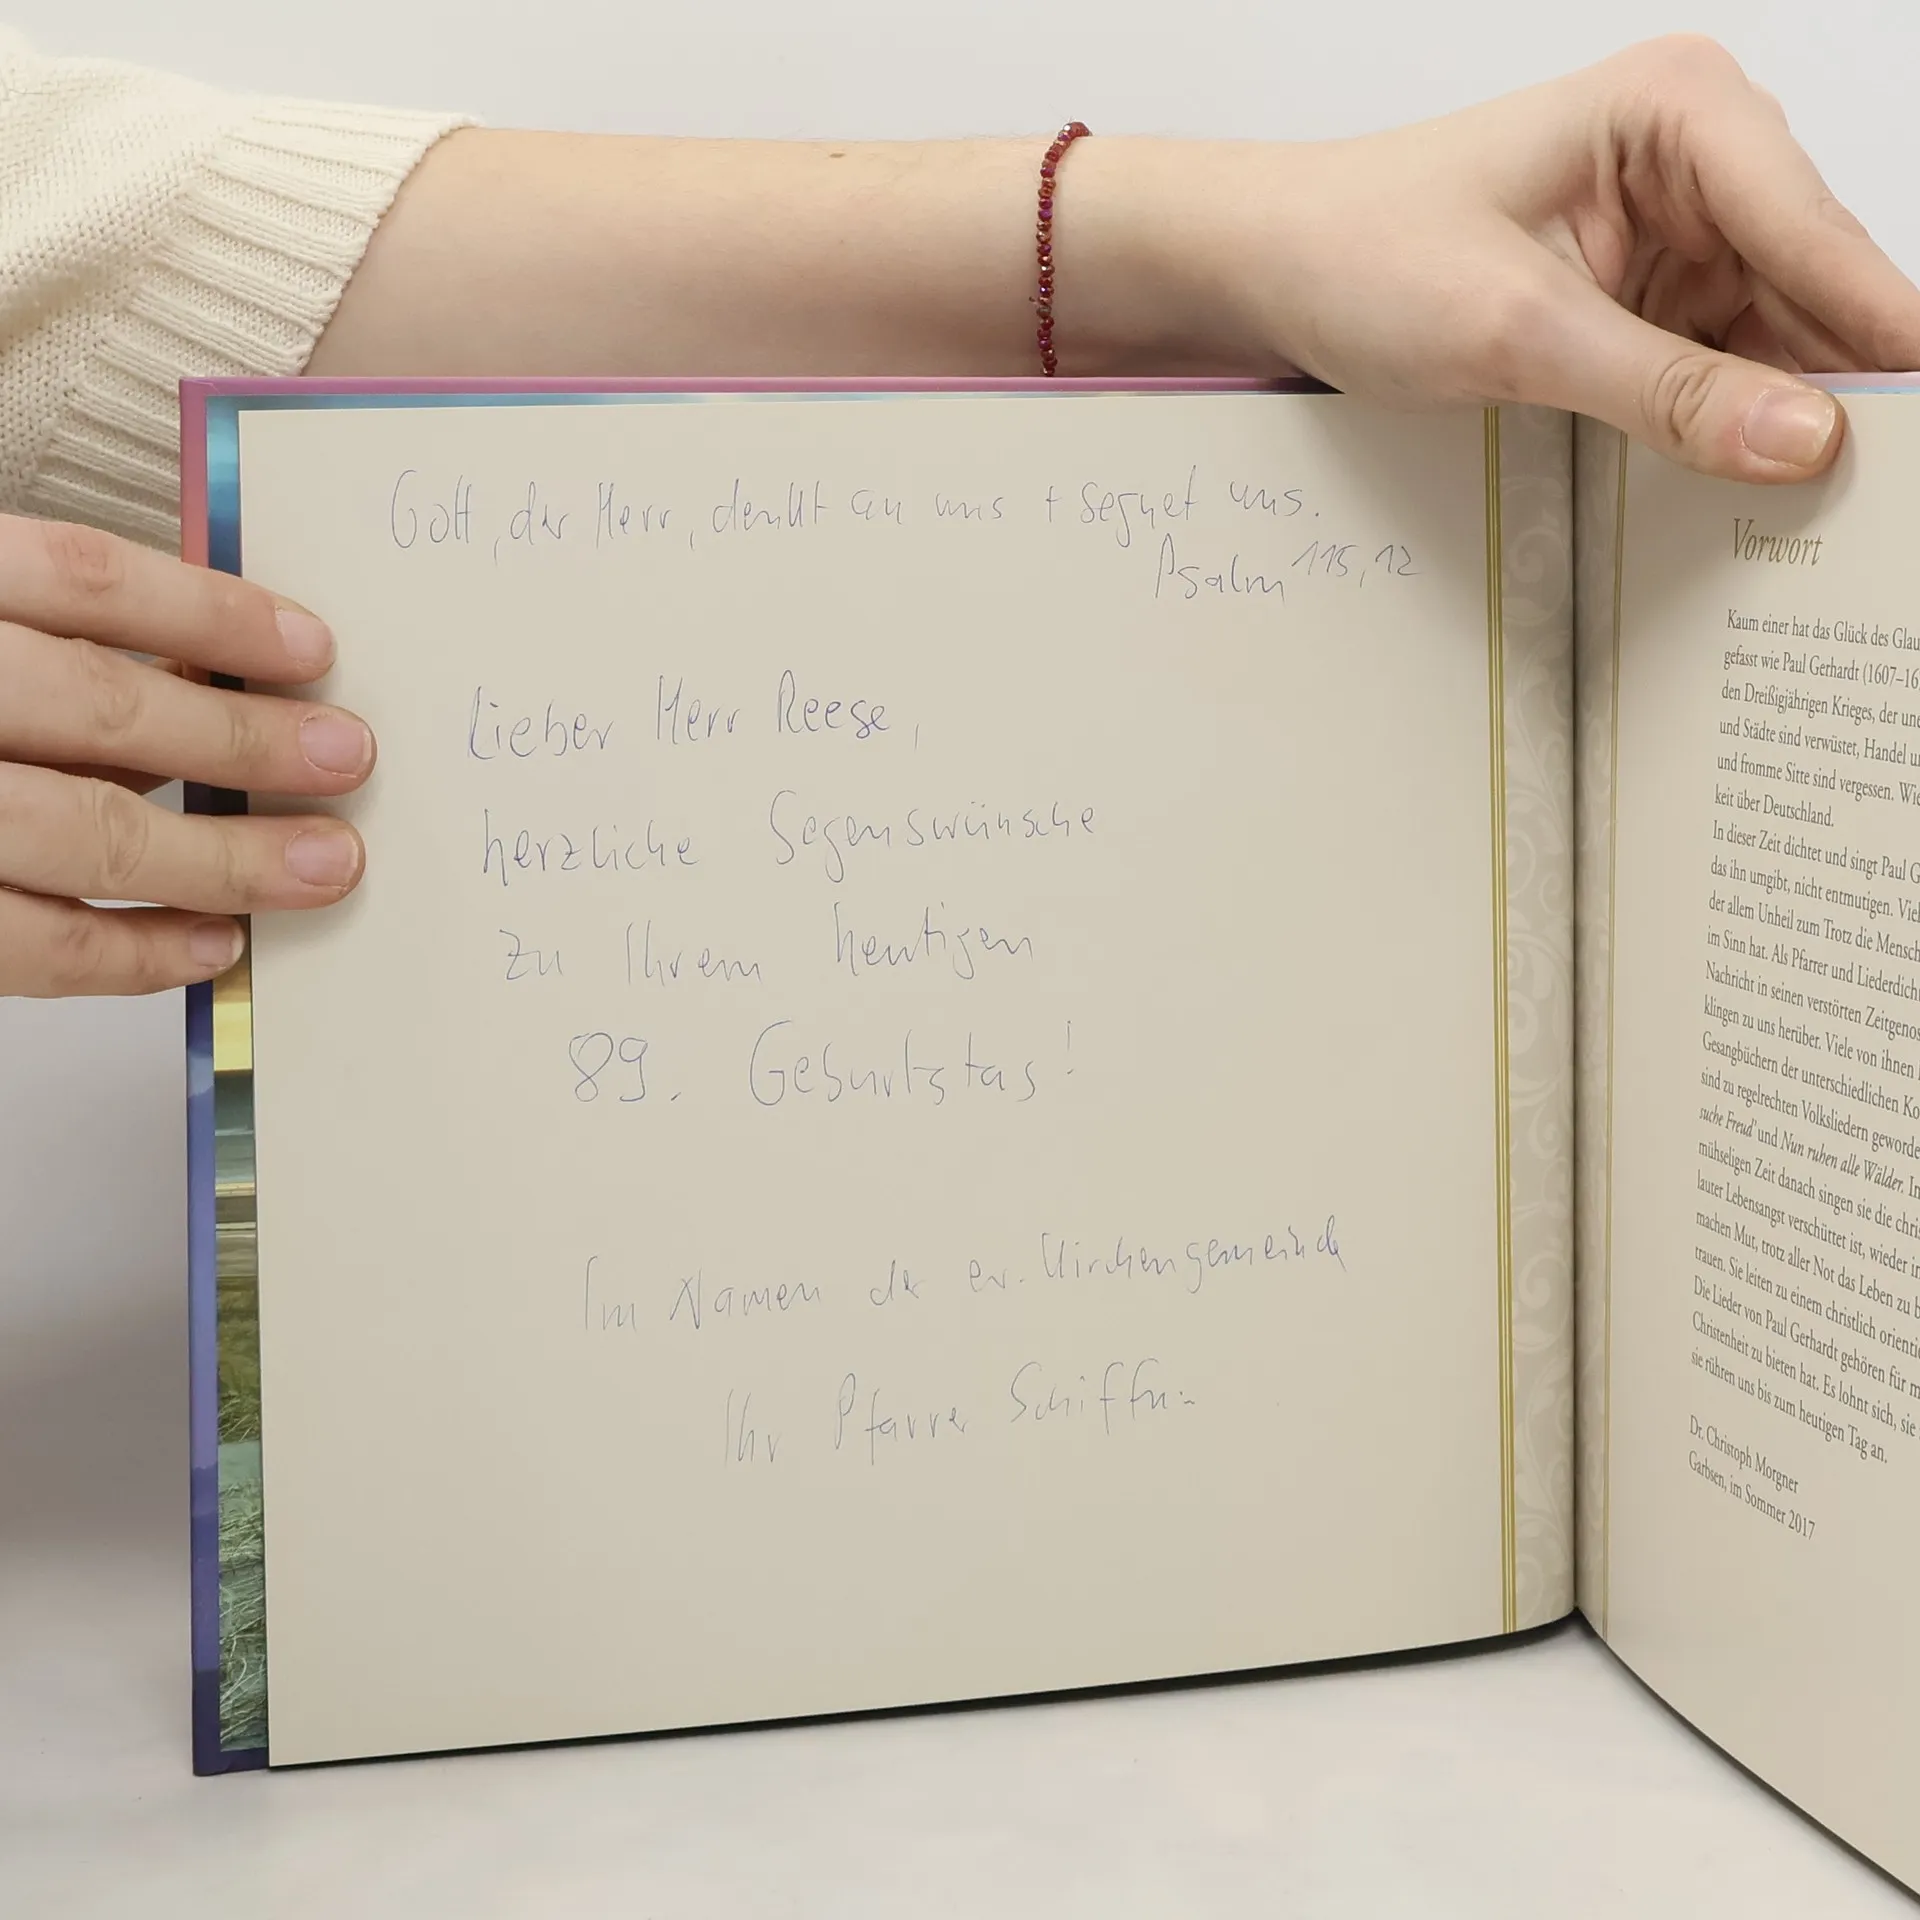 Gott, der Herr, denkt an uns + segnet uns.
Psalm 115,12
Lieber Herr Reese,
herzliche Segenswünsche
zu Ihrem heutigen
89. Geburtstag!
Im Namen der ev. Kirchengemeinde
Ihr Pfarrer
Vorwort
Kaum einer hat das Glück des
gefasst wie Paul Gerhardt (1607–16
den Dreißigjährigen Krieges, der
und Städte sind verwüstet, Handel
und fromme Sitte sind vergessen.
keit über Deutschland.
In dieser Zeit dichtet und singt Paul
das ihn umgibt, nicht entmutigen.
der allem Unheil zum Trotz die
im Sinn hat. Als Pfarrer und
Nachricht in seinen verstörten
klingen zu uns herüber. Viele von ihnen
Gesangbüchern der unterschiedlichen
sind zu regelrechten Volksliedern
suche Freud' und Nun ruhen alle Wälder.
mühseligen Zeit danach singen sie die
lauter Lebensangst verschüttet ist, wieder
machen Mut, trotz aller Not das Leben zu
trauen. Sie leiten zu einem christlich
Die Lieder von Paul Gerhardt gehören für
Christenheit zu bieten hat. Es lohnt sich, sie
sie rühren uns bis zum heutigen Tag an.
Dr. Christoph Morgner
Garbsen, im Sommer 2017